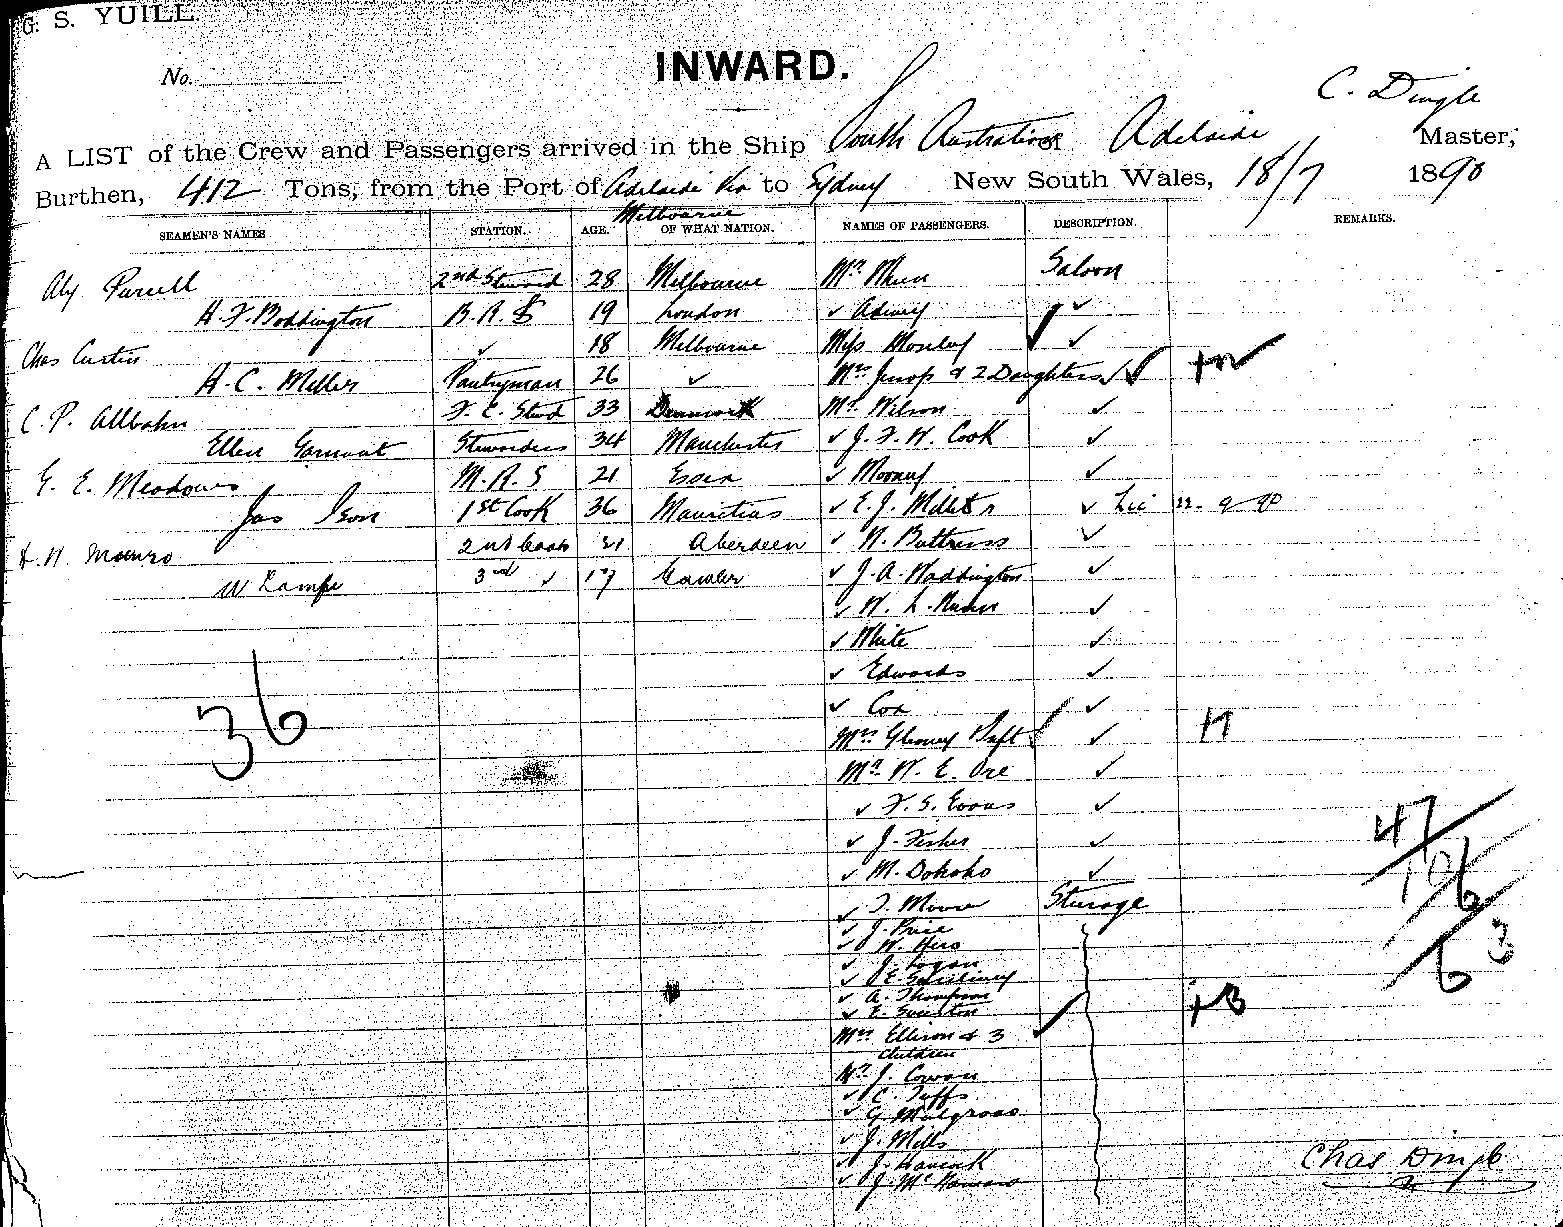 G. S. YUILL
No.
INWARD.
C. Dingle
A LIST of the Crew and Passengers arrived in the Ship South Australian of Adelaide Master,
Burthen, 412 Tons, from the Port of Adelaide via to Sydney New South Wales, 18/7 1890
Melbourne
SEAMEN'S NAMES STATION. AGE. OF WHAT NATION. NAMES OF PASSENGERS. DESCRIPTION. REMARKS.
Alx Purcell 2nd Steward 28 Melbourne Mr Saloon
H. F. Boddington B.R.S 19 London ✓ ✓
Chas Curtis ✓ 18 Melbourne Miss Moseley ✓
H. C. Miller Pantryman 26 ✓ Mrs Jessop & 2 Daughters ✓
C. P. Allbohn F. C. Stwd 33 Denmark Mr Wilson ✓
Ellen Stewardess 34 Manchester ✓ J. F. W. Cook ✓
G. E. Meadows M. R. S 21 Essex ✓ Mooney ✓
Jas Ison 1st Cook 36 Mauritius ✓ E. J. Miller ✓ Lic 22-9-90
H. N. Munro 2nd Cook 31 Aberdeen ✓ N. Buttress ✓
W Lampe 3rd ✓ 17 Gawler ✓ J. A. Waddington ✓
✓ W. L. ✓
✓ White ✓
✓ Edwards ✓
36
✓ Cox ✓
Mrs ✓ 17
Mr W. E. Ore ✓
✓ F. S. Evans ✓
✓ J. Fisher ✓
47
✓ M. Dohoho ✓
106
✓ T. Moore Steerage
✓ J. Price
✓ W.
63
✓ J. Logan
✓ E.
✓ A. Thompson
✓ E.
+3
Mrs Ellison & 3
children
Mr J. Cowan
✓ C. Teffs
✓ G
✓ J. Mills
✓ J. Hancock
✓ J. Mc
Chas Dingle